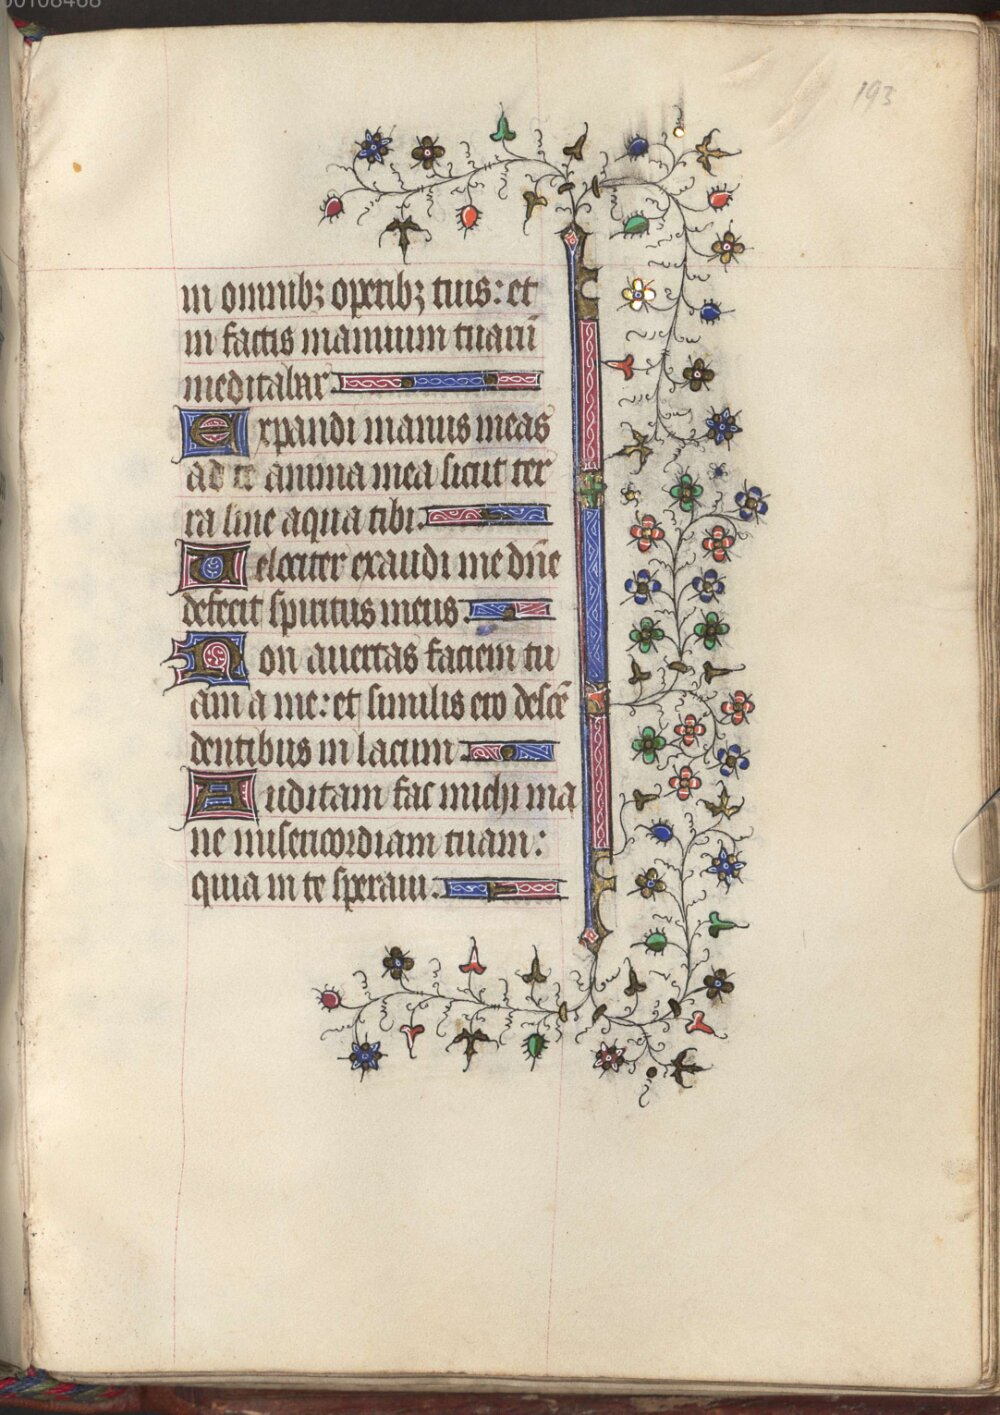 00108468
193
in omnibꝫ operibꝫ tuis: et
in factis manuum tuarū
meditabar.
Expandi manus meas
ad te anima mea sicut ter
ra sine aqua tibi.
Uelociter exaudi me dn̄e
defecit spiritus meus.
Non auertas faciem tu
am a me: et similis ero descē
dentibus in lacum.
Auditam fac michi ma
ne misericordiam tuam:
quia in te speraui.